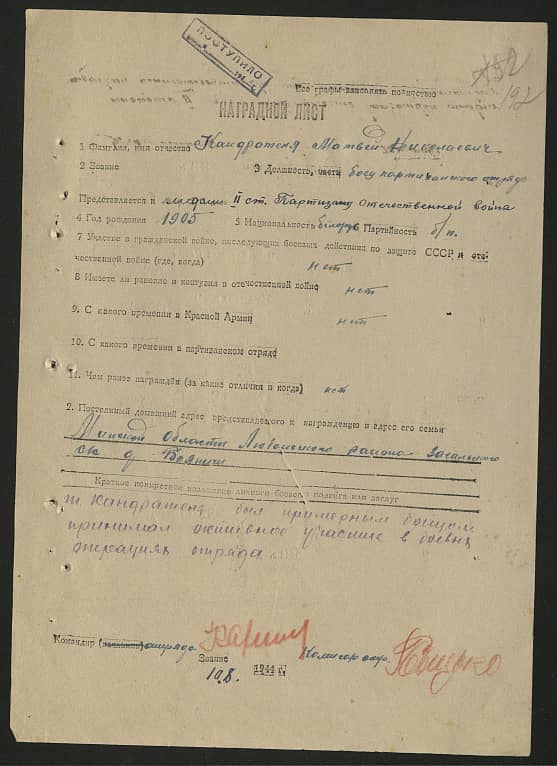 ПОСТУПИЛО
192
192
Все графы заполнять полностью
НАГРАДНОЙ ЛИСТ
1 Фамилия, имя отчество Кандратеня Матвей Николаевич
2 Звание 3 Должность, часть боец партизанского отряда
Представляется к медали II ст. Партизану Отечественной война
4 Год рождения 1905 5 Национальность белорус Партийность б/п.
7 Участие в гражданской войне, последующих боевых действиях по защите СССР и оте
чественной войне (где, когда) нет
8 Имеет ли ранения и контузии в отечественной войне нет
9. С какого времени в Красной Армии нет
10. С какого времени в партизанском отряде
11. Чем ранее награждён (за какие отличия и когда) нет
2. Постоянный домашний адрес представляемого к награждению и адрес его семьи
Минской Области Любанского района
д
Краткое конкретное изложение личного боевого подвига или заслуг
т. Кандратеня был примерным бойцом
принимал активное участие в боевых
операциях отряда
Командир (начальник) отряда Комисар отр.
Звание
10.8. 1944 г.